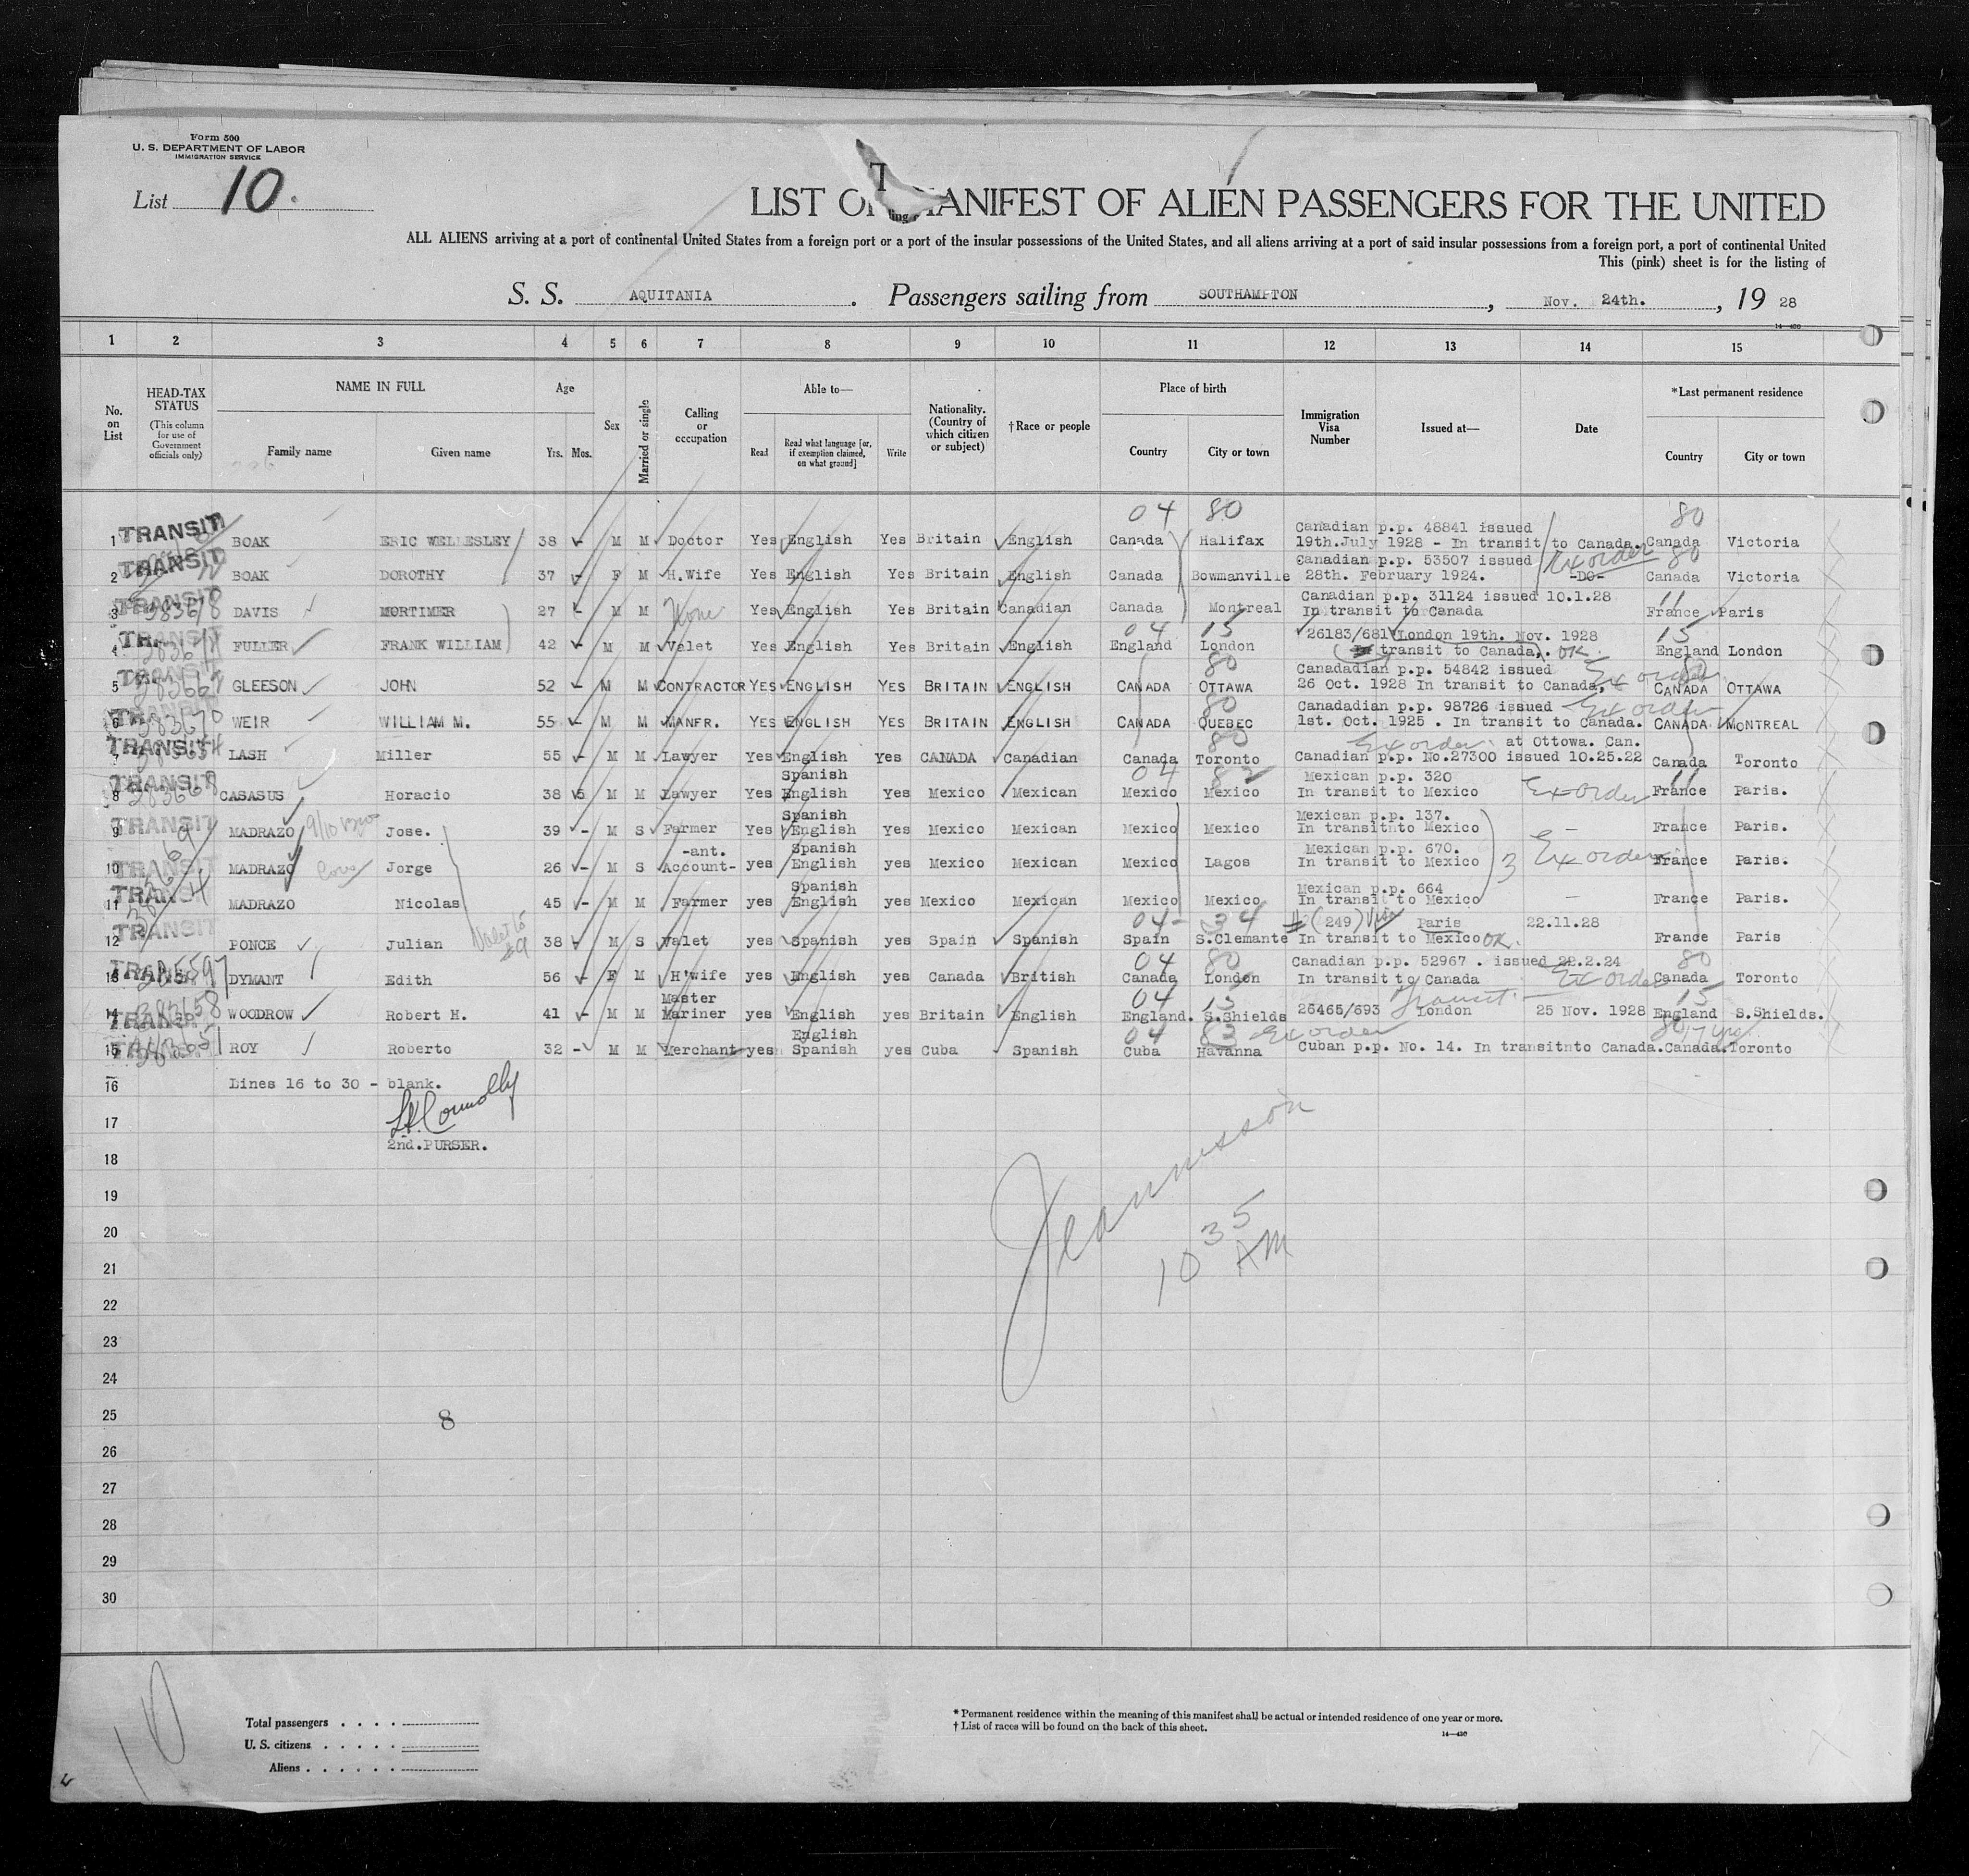 Form 500
U. S. DEPARTMENT OF LABOR
IMMIGRATION SERVICE
List 10.
LIST OR MANIFEST OF ALIEN PASSENGERS FOR THE UNITED
ALL ALIENS arriving at a port of continental United States from a foreign port or a port of the insular possessions of the United States, and all aliens arriving at a port of said insular possessions from a foreign port, a port of continental United
This (pink) sheet is for the listing of
S. S. AQUITANIA. Passengers sailing from SOUTHAMPTON, Nov. 24th., 19 28
14—430
1 2 3 4 5 6 7 8 9 10 11 12 13 14 15
No. on List
HEAD-TAX STATUS (This column for use of Government officials only)
NAME IN FULL
Family name Given name
Age
Yrs. Mos.
Sex
Married or single
Calling or occupation
Able to—
Read Read what language [or, if exemption claimed, on what ground] Write
Nationality. (Country of which citizen or subject)
†Race or people
Place of birth
Country City or town
Immigration Visa Number
Issued at—
Date
*Last permanent residence
Country City or town
04 80 80
Canadian p.p. 48841 issued
1 TRANSIT BOAK ERIC WELLESLEY 38 M M Doctor Yes English Yes Britain English Canada Halifax 19th.July 1928 - In transit to Canada. Canada Victoria
Canadian p.p. 53507 issued Ex order 80
2 TRANSIT BOAK DOROTHY 37 F M H.Wife Yes English Yes Britain English Canada Bowmanville 28th. February 1924. -DO- Canada Victoria
Canadian p.p. 31124 issued 10.1.28 11
3 TRANSIT DAVIS MORTIMER 27 M M None Yes English Yes Britain Canadian Canada Montreal In transit to Canada France Paris
04 15 26183/681 London 19th. Nov. 1928 15
4 TRANSIT FULLER FRANK WILLIAM 42 M M Valet Yes English Yes Britain English England London (In transit to Canada). OK. England London
80 Canadadian p.p. 54842 issued Ex order 80
5 TRANSIT GLEESON JOHN 52 M M CONTRACTOR YES ENGLISH YES BRITAIN ENGLISH CANADA OTTAWA 26 Oct. 1928 In transit to Canada, CANADA OTTAWA
80 Canadadian p.p. 98726 issued Ex order
6 TRANSIT 283670 WEIR WILLIAM M. 55 M M MANFR. YES ENGLISH YES BRITAIN ENGLISH CANADA QUEBEC 1st. Oct. 1925 . In transit to Canada. CANADA MONTREAL
80 Ex order at Ottowa. Can.
7 TRANSIT LASH Miller 55 M M Lawyer Yes English Yes CANADA Canadian Canada Toronto Canadian p.p. No.27300 issued 10.25.22 Canada Toronto
Spanish 04 82 Mexican p.p. 320 11
8 TRANSIT 283668 CASASUS Horacio 38 5 M M Lawyer Yes English Yes Mexico Mexican Mexico Mexico In transit to Mexico Ex order France Paris.
Spanish Mexican p.p. 137.
9 TRANSIT MADRAZO Jose. 39 - M S Farmer Yes English Yes Mexico Mexican Mexico Mexico In transitnto Mexico - France Paris.
-ant. Spanish Mexican p.p. 670.
10 TRANSIT MADRAZO Jorge 26 - M S Account- yes English Yes Mexico Mexican Mexico Lagos In transit to Mexico 3 Ex order France Paris.
Spanish Mexican p.p. 664
11 TRANSIT MADRAZO Nicolas 45 - M M Farmer yes English yes Mexico Mexican Mexico Mexico In transit to Mexico - France Paris.
04- 34 # (249) Paris 22.11.28
12 TRANSIT PONCE Julian 38 M S Valet yes Spanish yes Spain Spanish Spain S.Clemante In transit to Mexico OK. France Paris
04 80 Canadian p.p. 52967 . issued 22.2.24 80
13 TRANSIT DYMANT Edith 56 F M H'wife yes English yes Canada British Canada London In transit to Canada Ex order Canada Toronto
Master 04 15 Transit 15
14 TRANSIT WOODROW Robert H. 41 - M M Mariner yes English yes Britain English England. S.Shields 26465/693 London 25 Nov. 1928 England S.Shields.
English 04 83 Ex order 80 7 yrs
15 TRANSIT ROY Roberto 32 - M M Merchant yes Spanish yes Cuba Spanish Cuba Havanna Cuban p.p. No. 14. In transitnto Canada.Canada.Toronto
16 Lines 16 to 30 - blank.
17 Connolly
2nd.PURSER.
18
19
20
21
22
23
24
25
26
27
28
29
30
Jeannesson
10 35 AM
8
10
Total passengers . . . .
U. S. citizens . . . . .
Aliens . . . . . .
* Permanent residence within the meaning of this manifest shall be actual or intended residence of one year or more.
† List of races will be found on the back of this sheet.
14—430